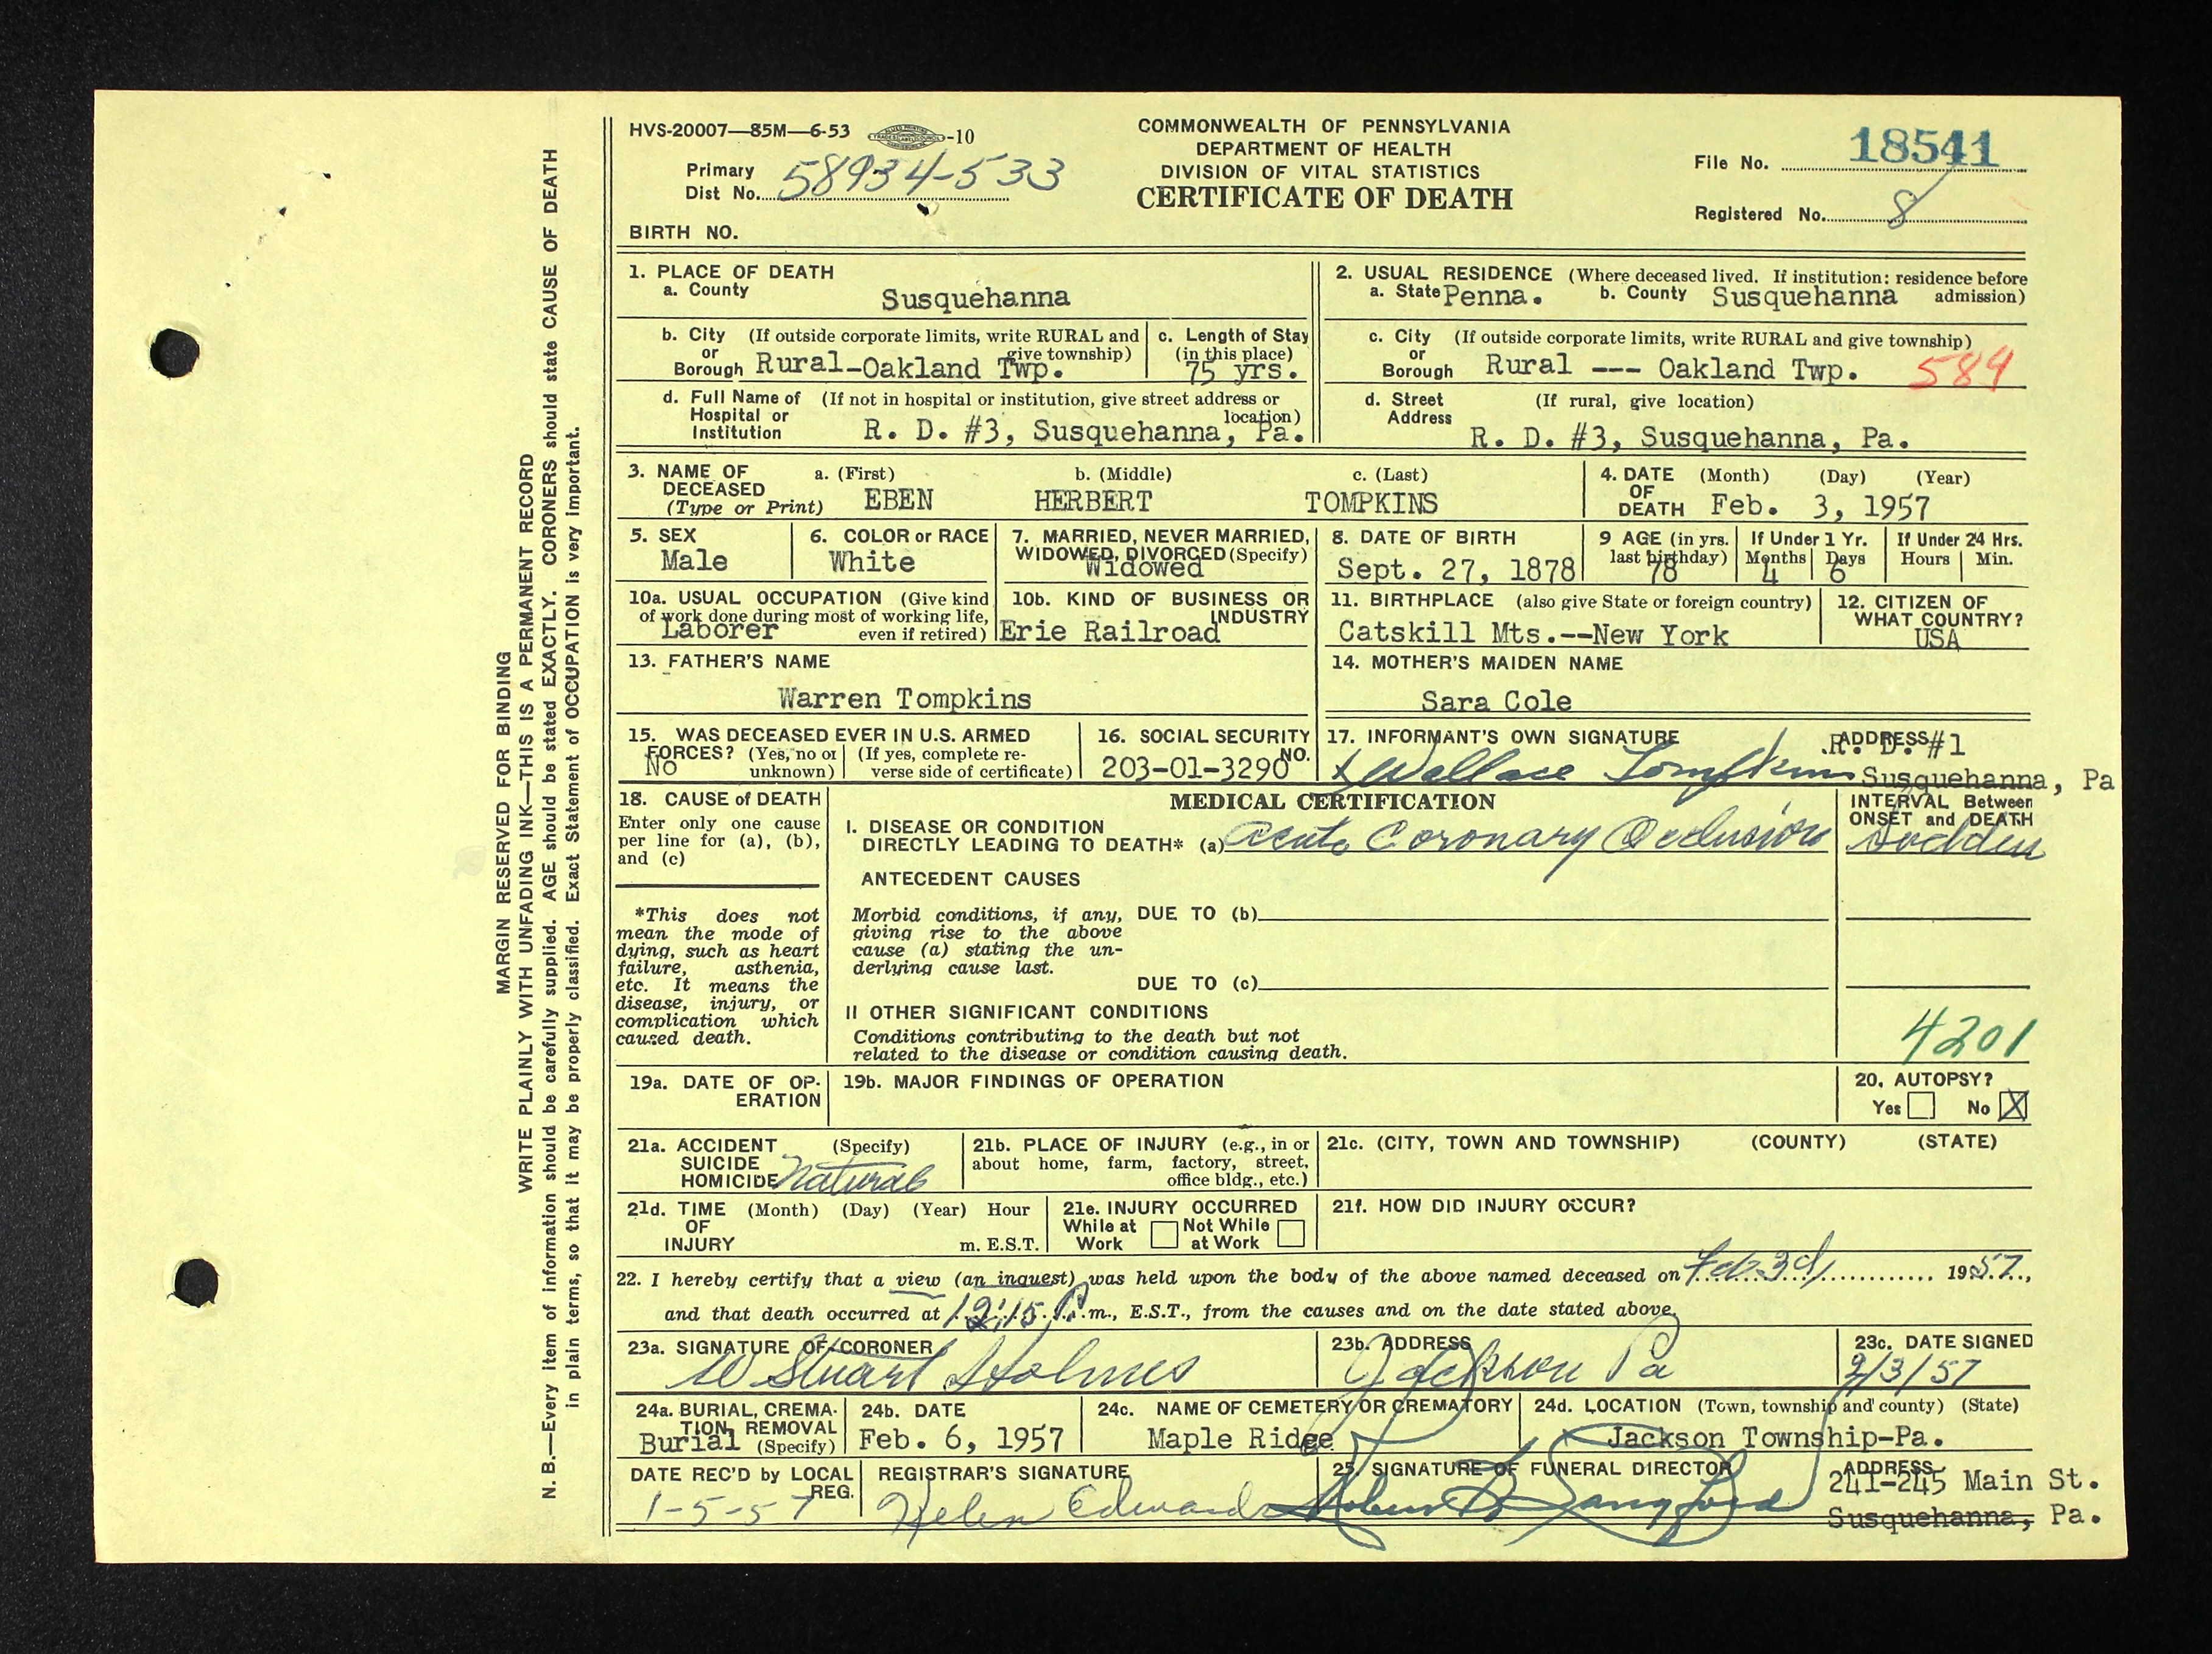 HVS-20007—85M—6-53 -10
COMMONWEALTH OF PENNSYLVANIA
DEPARTMENT OF HEALTH
DIVISION OF VITAL STATISTICS
CERTIFICATE OF DEATH
Primary
Dist No. 58934-533
File No. 18541
Registered No. 8
BIRTH NO.
1. PLACE OF DEATH
a. County Susquehanna
2. USUAL RESIDENCE (Where deceased lived. If institution: residence before admission)
a. State Penna. b. County Susquehanna
b. City (If outside corporate limits, write RURAL and give township)
or
Borough Rural-Oakland Twp.
c. Length of Stay
(in this place)
75 yrs.
c. City (If outside corporate limits, write RURAL and give township)
or
Borough Rural --- Oakland Twp. 584
d. Full Name of (If not in hospital or institution, give street address or location)
Hospital or
Institution R. D. #3, Susquehanna, Pa.
d. Street (If rural, give location)
Address
R. D. #3, Susquehanna, Pa.
3. NAME OF DECEASED (Type or Print)
a. (First) b. (Middle) c. (Last)
EBEN HERBERT TOMPKINS
4. DATE OF DEATH (Month) (Day) (Year)
Feb. 3, 1957
5. SEX
Male
6. COLOR or RACE
White
7. MARRIED, NEVER MARRIED,
WIDOWED, DIVORCED (Specify)
Widowed
8. DATE OF BIRTH
Sept. 27, 1878
9 AGE (in yrs. last birthday)
78
If Under 1 Yr.
Months Days
4 6
If Under 24 Hrs.
Hours Min.
10a. USUAL OCCUPATION (Give kind
of work done during most of working life,
even if retired)
Laborer
10b. KIND OF BUSINESS OR
INDUSTRY
Erie Railroad
11. BIRTHPLACE (also give State or foreign country)
Catskill Mts.--New York
12. CITIZEN OF
WHAT COUNTRY?
USA
13. FATHER'S NAME
Warren Tompkins
14. MOTHER'S MAIDEN NAME
Sara Cole
15. WAS DECEASED EVER IN U.S. ARMED
FORCES? (Yes, no or unknown) (If yes, complete reverse side of certificate)
No
16. SOCIAL SECURITY
NO.
203-01-3290
17. INFORMANT'S OWN SIGNATURE
x Wallace Tompkins
ADDRESS
R. D. #1
Susquehanna, Pa
18. CAUSE of DEATH
Enter only one cause
per line for (a), (b),
and (c)
*This does not
mean the mode of
dying, such as heart
failure, asthenia,
etc. It means the
disease, injury, or
complication which
caused death.
MEDICAL CERTIFICATION
I. DISEASE OR CONDITION
DIRECTLY LEADING TO DEATH* (a) Acute Coronary Occlusion
INTERVAL Between
ONSET and DEATH
Sudden
ANTECEDENT CAUSES
Morbid conditions, if any,
giving rise to the above
cause (a) stating the un-
derlying cause last.
DUE TO (b)
DUE TO (c)
II OTHER SIGNIFICANT CONDITIONS
Conditions contributing to the death but not
related to the disease or condition causing death.
4201
19a. DATE OF OP-
ERATION
19b. MAJOR FINDINGS OF OPERATION
20. AUTOPSY?
Yes No X
21a. ACCIDENT (Specify)
SUICIDE
HOMICIDE Natural
21b. PLACE OF INJURY (e.g., in or
about home, farm, factory, street,
office bldg., etc.)
21c. (CITY, TOWN AND TOWNSHIP) (COUNTY) (STATE)
21d. TIME (Month) (Day) (Year) Hour
OF
INJURY m. E.S.T.
21e. INJURY OCCURRED
While at Work Not While at Work
21f. HOW DID INJURY OCCUR?
22. I hereby certify that a view (an inquest) was held upon the body of the above named deceased on Feb. 3d, 1957,
and that death occurred at 12:15 P.m., E.S.T., from the causes and on the date stated above.
23a. SIGNATURE OF CORONER
W Stuart Holmes
23b. ADDRESS
Jackson Pa
23c. DATE SIGNED
2/3/57
24a. BURIAL, CREMA-
TION, REMOVAL
(Specify)
Burial
24b. DATE
Feb. 6, 1957
24c. NAME OF CEMETERY OR CREMATORY
Maple Ridge
24d. LOCATION (Town, township and county) (State)
Jackson Township-Pa.
DATE REC'D by LOCAL
REG.
1-5-57
REGISTRAR'S SIGNATURE
Helen Edwards
25. SIGNATURE OF FUNERAL DIRECTOR
ADDRESS
241-245 Main St.
Susquehanna, Pa.
MARGIN RESERVED FOR BINDING
WRITE PLAINLY WITH UNFADING INK—THIS IS A PERMANENT RECORD
N. B.—Every item of information should be carefully supplied. AGE should be stated EXACTLY. CORONERS should state CAUSE OF DEATH
in plain terms, so that it may be properly classified. Exact Statement of OCCUPATION is very important.